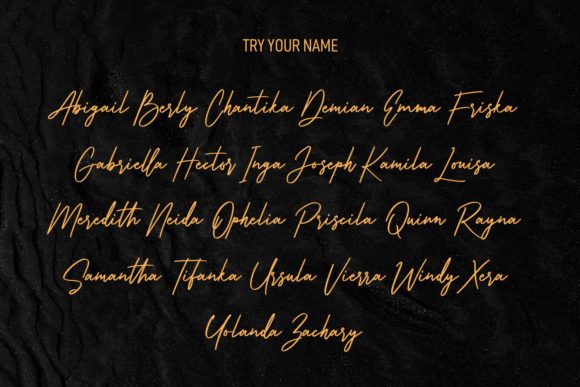 TRY YOUR NAME
Abigail Berly Chantika Demian Emma Friska
Gabriella Hector Inga Joseph Kamila Louisa
Meredith Neida Ophelia Priscila Quinn Rayna
Samantha Tifanka Ursula Vierra Windy Xera
Yolanda Zachary